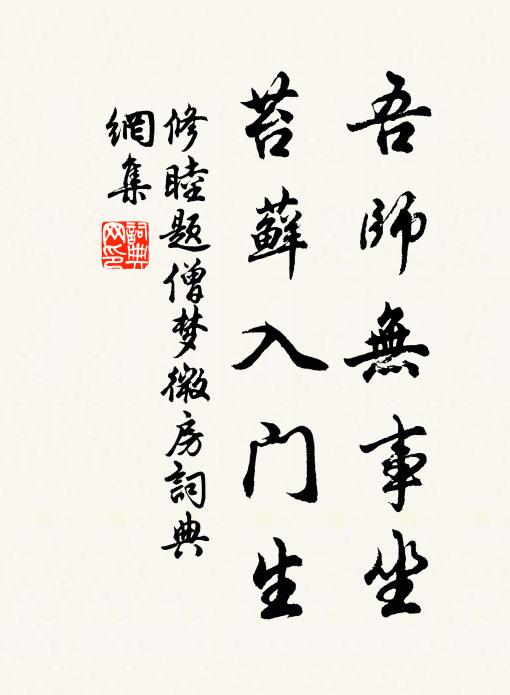 吾師無事坐
苔蘚入门生
修睦题僧梦微房詞典
網集
詞典
网印